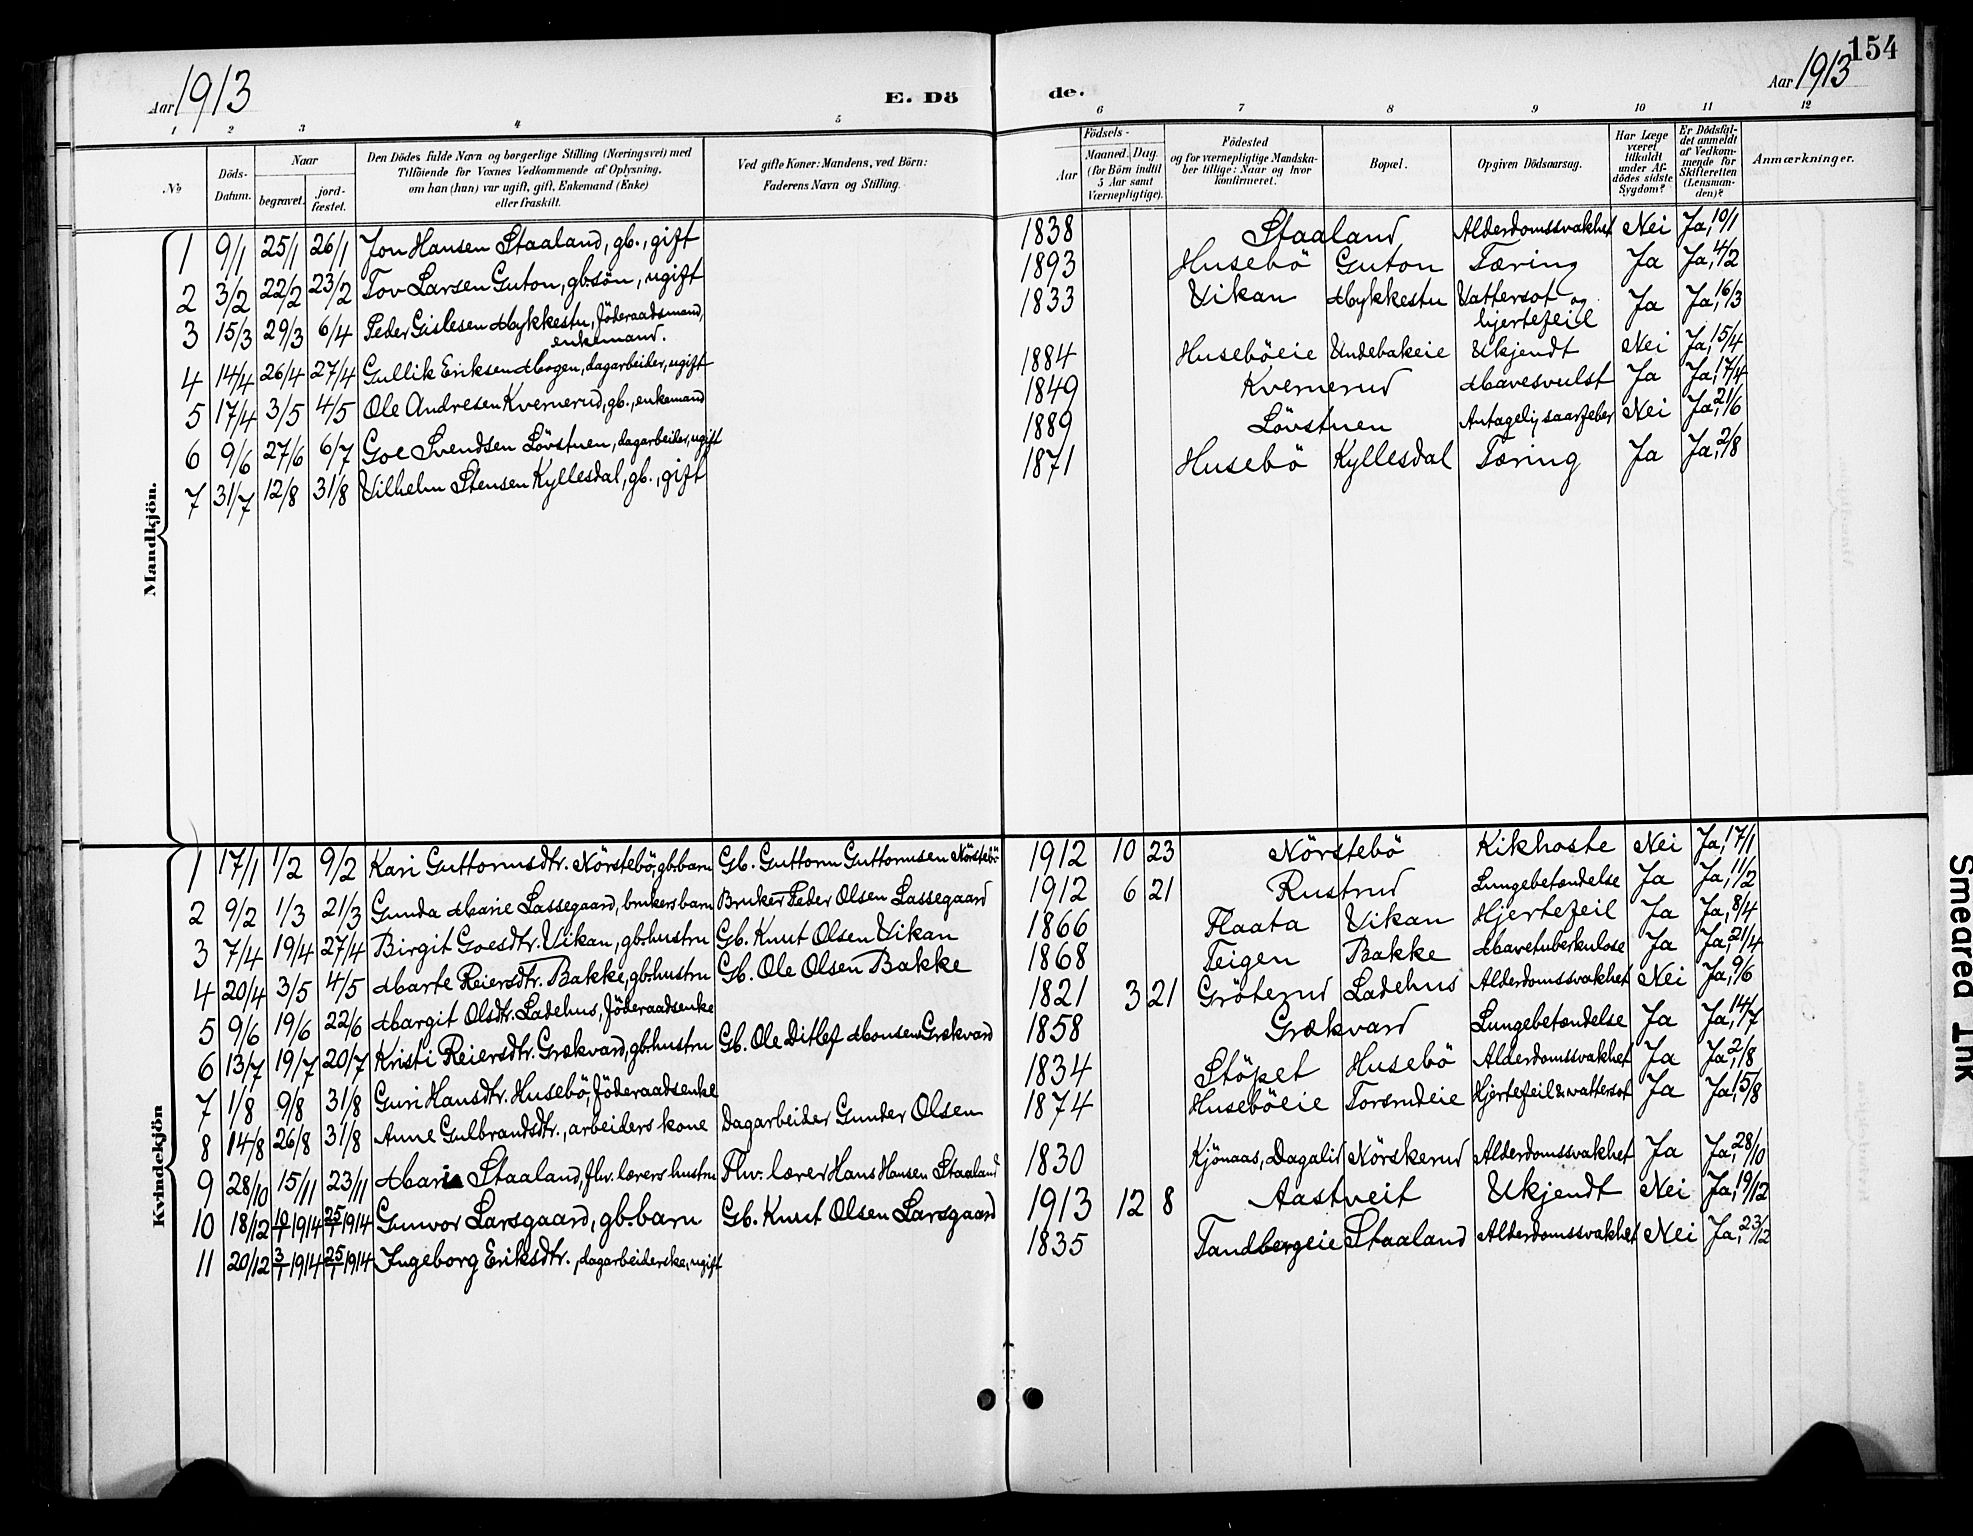 154
Aar 1913 E. Dö de. Aar 1913
1 2 3 4 5 6 7 8 9 10 11 12
No
Döds-Datum.
Naar
begravet.
jord-fæstet.
Den Dödes fulde Navn og borgerlige Stilling (Næringsvei) med
Tilföiende for Voxnes Vedkommende af Oplysning,
om han (hun) var ugift, gift, Enkemand (Enke)
eller fraskilt.
Ved gifte Koner: Mandens, ved Börn:
Faderens Navn og Stilling.
Födsels-
Aar
Maaned. Dag.
(for Börn indtil
5 Aar samt
Værnepligtige).
Födested
og for værnepligtige Mandska-
ber tillige: Naar og hvor
konfirmeret.
Bopæl.
Opgiven Dödsaarsag.
Har Læge
været
tilkaldt
under Af-
dödes sidste
Sygdom?
Er Dödsfal-
det anmeldt
af Vedkom-
mende for
Skifteretten
(Lensman-
den)?
Anmærkninger.
Mandkjön.
1 9/1 25/1 26/1 Jon Hansen Staaland, gb., gift 1838 Staaland Alderdomssvakhet Nei Ja, 10/1
2 3/2 22/2 23/2 Tov Larsen Guton, gb.sön, ugift 1893 Husebö Guton Tæring Ja Ja, 4/2
3 15/3 29/3 6/4 Peder Gislesen Mykkestu, Föderaadsmand, enkemand. 1833 Vikan Mykkestu Vattersot og hjertefeil Ja Ja, 16/3
4 14/4 26/4 27/4 Gullik Eriksen Mogen, dagarbeider, ugift 1884 Huseböeie Undebakeie Ukjendt Nei Ja, 15/4
5 17/4 3/5 4/5 Ole Andresen Kvernerud, gb., enkemand 1849 Kvernerud Mavesvulst Ja Ja, 17/4
6 9/6 27/6 6/7 Goe Svendsen Lövstuen, dagarbeider, ugift 1889 Lövstuen Antagelig saarfeber Nei Ja, 21/6
7 31/7 12/8 31/8 Vilhelm Stensen Kyllesdal, gb., gift 1871 Husebö Kyllesdal Tæring Ja Ja, 2/8
Kvindekjön
1 17/1 1/2 9/2 Kari Guttormsdtr. Nörstebö, gb.barn Gb. Guttorm Guttormsen Nörstebö 1912 10 23 Nörstebö Kikhoste Nei Ja, 17/1
2 9/2 1/3 21/3 Gunda Marie Lassegaard, brukers barn Bruker Peder Olsen Lassegaard 1912 6 21 Rustrud Lungebetændelse Ja Ja, 11/2
3 7/4 19/4 27/4 Birgit Goesdtr. Vikan, gb.hustru Gb. Knut Olsen Vikan 1866 Flaata Vikan Hjertefeil Ja Ja, 8/4
4 20/4 3/5 4/5 Marte Reiersdtr. Bakke, gb.hustru Gb. Ole Olsen Bakke 1868 Teigen Bakke Mavetuberkulose Ja Ja, 21/4
5 9/6 19/6 22/6 Margit Olsdtr. Ladehus, Föderaadsenke 1821 3 21 Gröterud Ladehus Alderdomssvakhet Nei Ja, 9/6
6 13/7 19/7 20/7 Kristi Reiersdtr. Grækvard, gb.hustru Gb. Ole Ditlef Monsen Grækvard 1858 Grækvard Lungebetændelse Ja Ja, 14/7
7 1/8 9/8 31/8 Guri Hansdtr. Husebö, Föderaadsenke 1834 Stöpet Husebö Alderdomssvakhet Ja Ja, 2/8
8 14/8 26/8 31/8 Anne Gulbrandsdtr., arbeiders kone Dagarbeider Gunder Olsen 1874 Huseböeie Torsrudeie Hjertefeil & vattersot Ja Ja, 15/8
9 28/10 15/11 23/11 Maria Staaland, fhv. lærers hustru Fhv. lærer Hans Hansen Staaland 1830 Kjönaas, Dagalid Nörskerud Alderdomssvakhet Ja Ja, 28/10
10 18/12 10/1 1914 25/1 1914 Gunvor Larsgaard, gb.barn Gb. Knut Olsen Larsgaard 1913 12 8 Aastveit Ukjendt Nei Ja, 19/12
11 20/12 3/1 1914 25/1 1914 Ingeborg Eriksdtr., dagarbeiderske, ugift 1835 Tandbergeie Staaland Alderdomssvakhet Nei Ja, 23/12
Smeared Ink